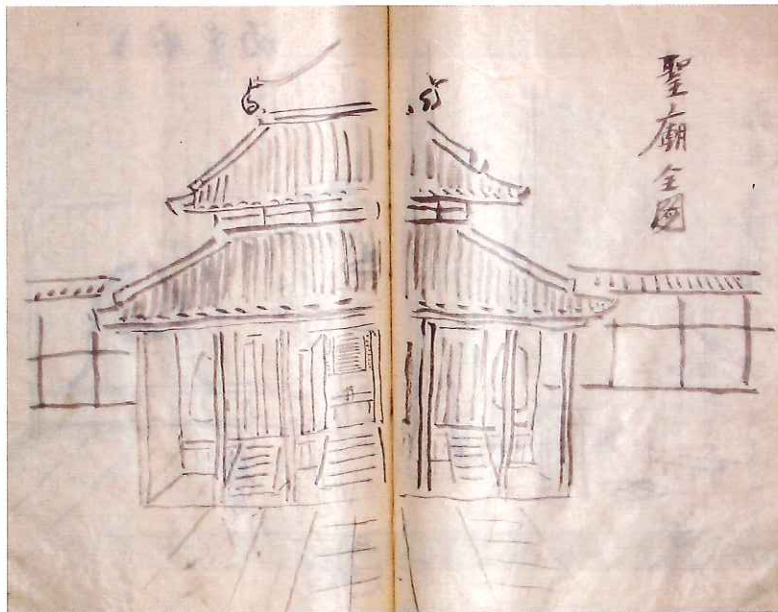 聖廟全圖